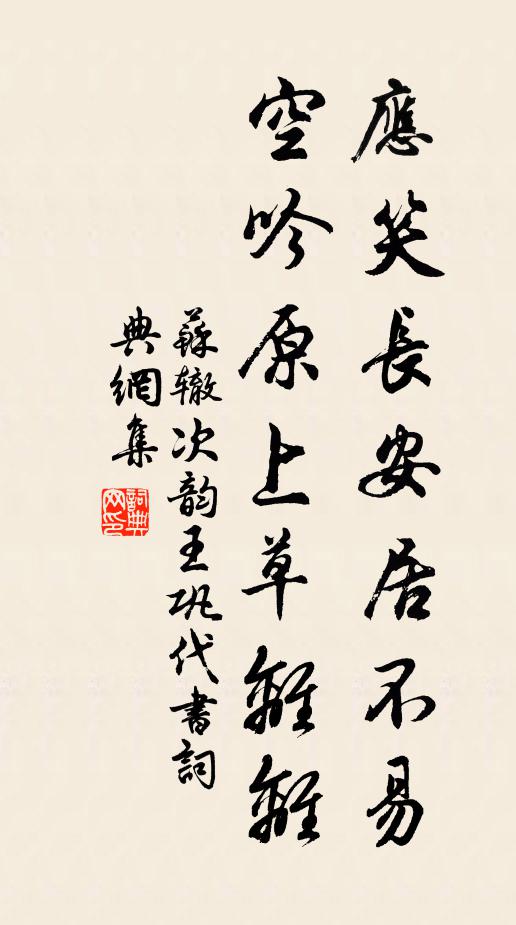 應笑長安居不易
空吟原上草離離
蘇辙次韵王巩代書詞
典網集
詞典网印